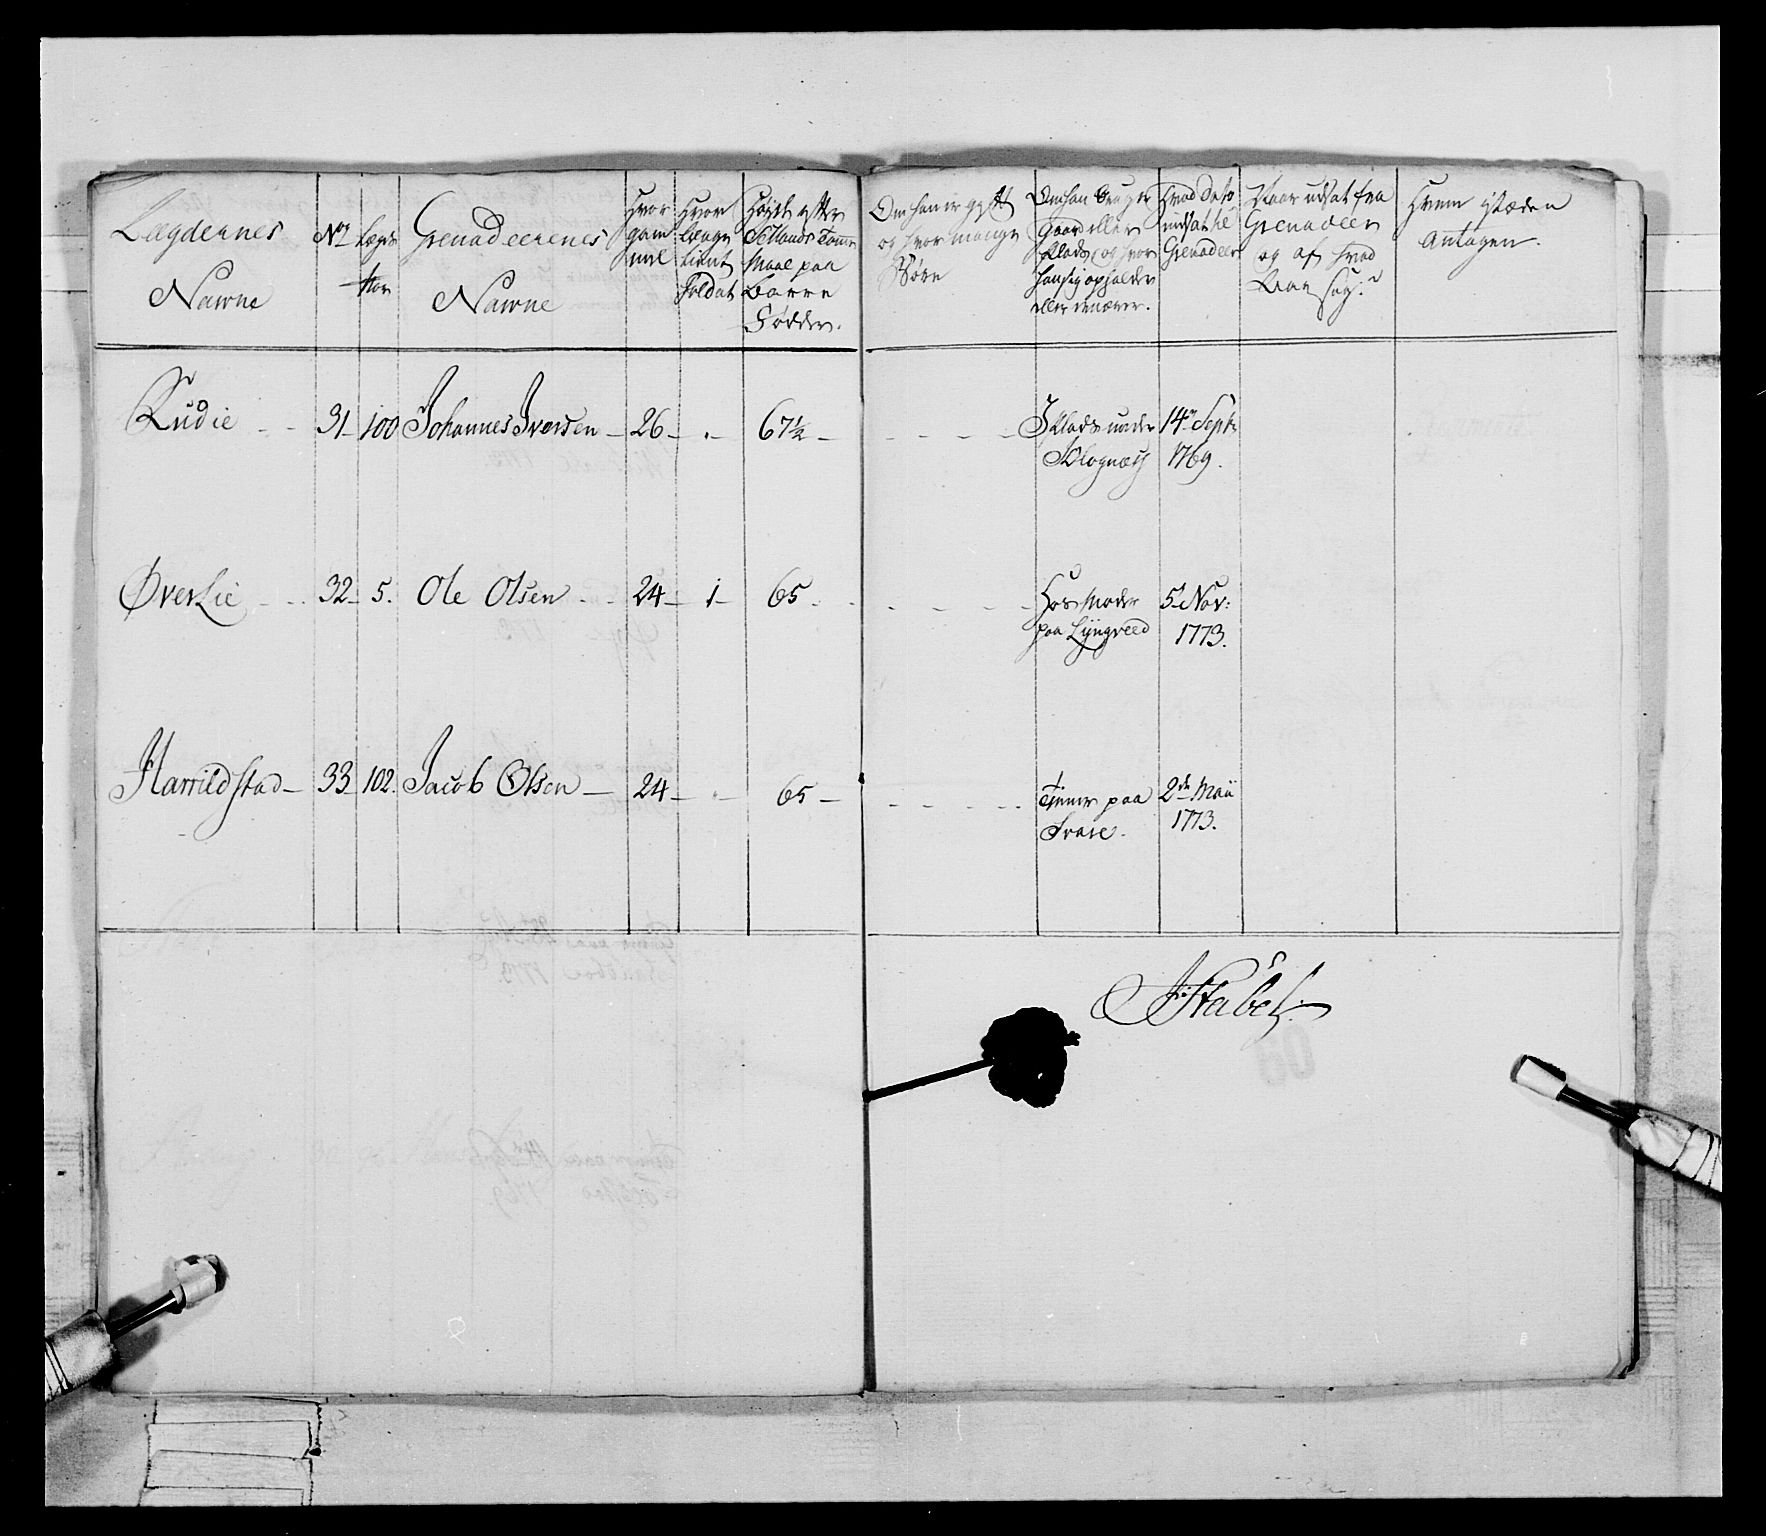 Lægdernes Nawne
No
Lægde Nor
Grenadeerenes Nawne
Hvor gam mel
Hvor længe tient Soldat
Høyde efter Sellands Tomme Maal paa Barre Fødder.
Om han er gift og hvor mange Børn
Om han bruger Gaard eller Plads, og hvor han sig opholder eller tienner.
Hvad Dato udsat til Grenadeer
Naar udsat fra Grenadeer og af hvad Aarsag.
Hvem i Stæden Antagen.
Rudie 31 100 Johannes Iversen 26 67½ Plads under 14 Sept:
1769.
Øverlie 32 5. Ole Olsen 24 1 65 Hos Moder 5 Nov:
paa Lyngveed 1773.
Harrildstad 33 102. Jacob Olsen 24 65 Tiener paa 2de Maii
1773.
Stabel